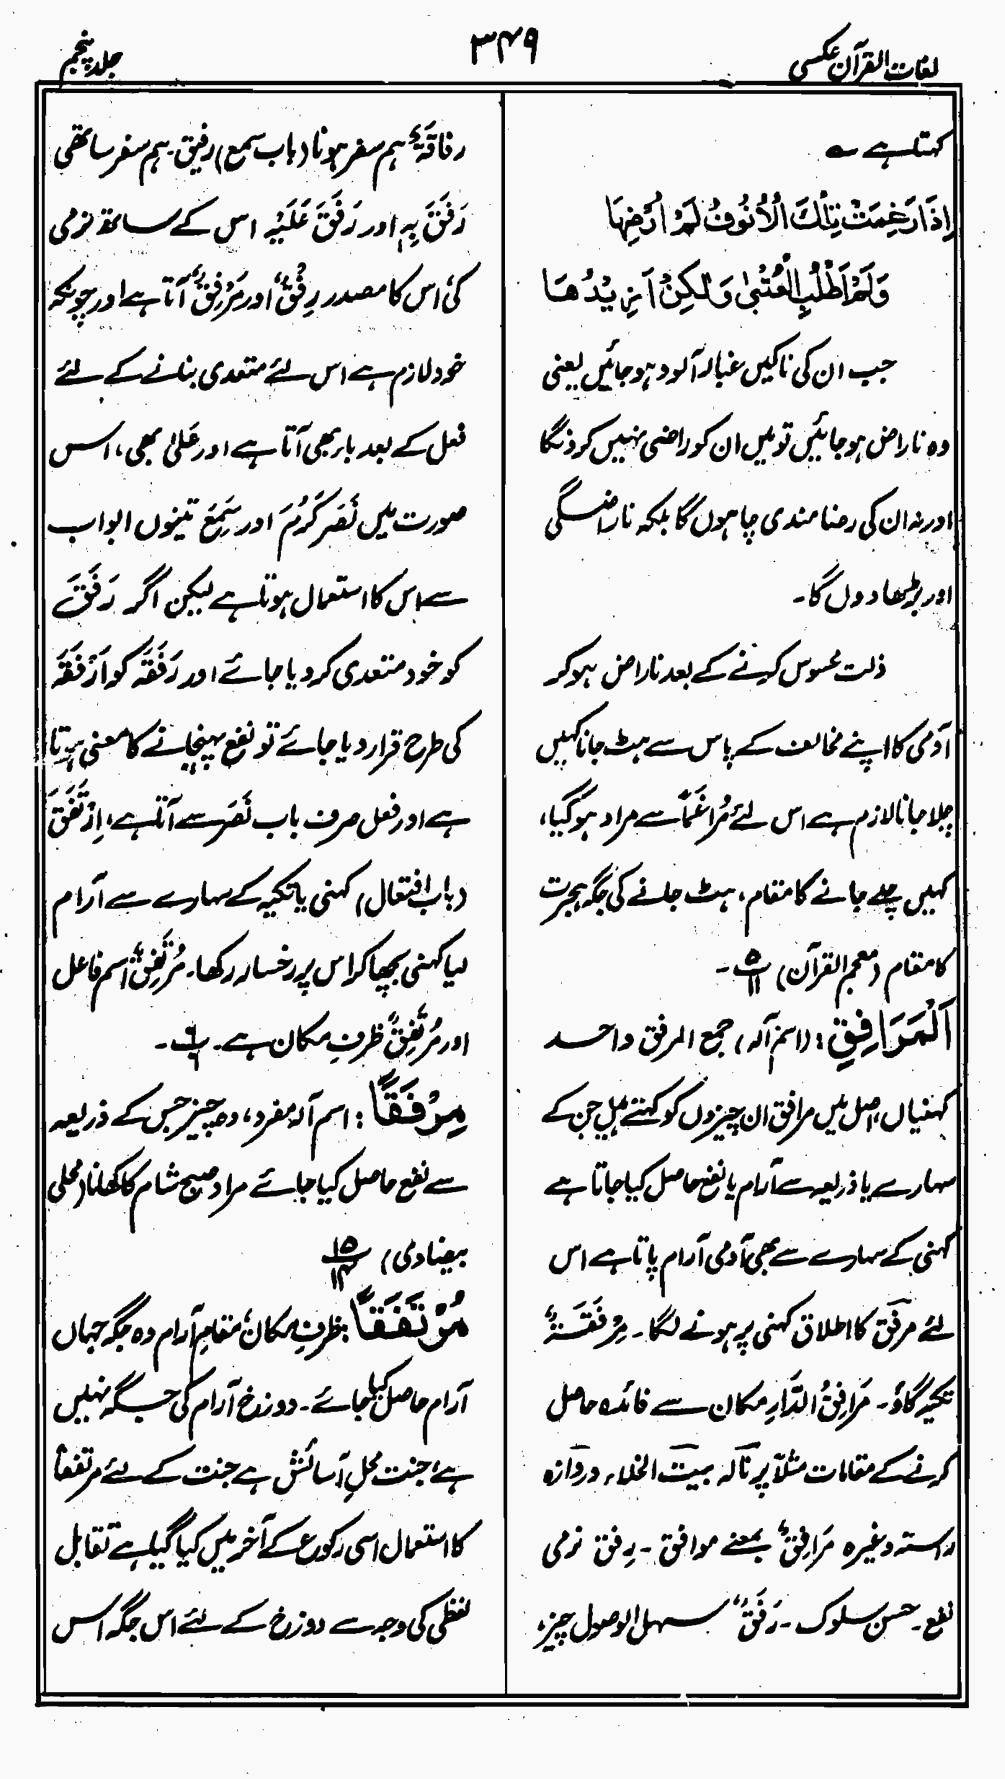 لغات القرآن عکسی
۳۴۹
جلد پنجم
کہتا ہے ؎
اِذَا رَغِمَتْ تِلْكَ الْاُنُوفُ لَمْ اُرْضِهَا
وَلَمْ اَطْلُبِ الْعُتْبٰى وَلٰكِنْ اَزِيْدُهَا
جب ان کی ناکیں غبار آلود ہو جائیں یعنی
وہ ناراض ہو جائیں تو میں ان کو راضی نہیں کرونگا
اور نہ ان کی رضا مندی چاہوں گا بلکہ ناراضگی
اور بڑھا دوں گا۔
ذلت محسوس کرنے کے بعد ناراض ہو کر
آدمی کا اپنے مخالف کے پاس سے ہٹ جانا کہیں
چلا جانا لازم ہے اس لئے مُراغَمًا سے مراد ہو گیا،
کہیں چلے جانے کا مقام، ہٹ جانے کی جگہ ہجرت
کا مقام (معجم القرآن) ۵/۱۱۔
اَلْمَرَافِقِ: (اسم آلہ) جمع المرفق واحد
کہنیاں، اصل میں مرافق ان چیزوں کو کہتے ہیں جن کے
سہارے یا ذریعہ سے آرام یا نفع حاصل کیا جاتا ہے
کہنی کے سہارے سے بھی آدمی آرام پاتا ہے اس
لئے مرفق کا اطلاق کہنی پر ہونے لگا۔ مِرْفَقَۃٌ
تکیہ گاؤ۔ مَرَافِقُ الدَّارِ مکان سے فائدہ حاصل
کرنے کے مقامات مثلاً پر نالہ بیت الخلاء دروازہ
راستہ وغیرہ مَرَافِقٌ بمعنے موافق۔ رِفق نرمی
نفع۔ حسن سلوک۔ رَفَقٌ سہل الوصول چیز،
رفاقَۃٌ ہم سفر ہونا (باب سمع) رفیق۔ ہم سفر ساتھی
رَفَقَ بِهٖ اور رَفَقَ عَلَيْهِ اس کے ساتھ نرمی
کی اس کا مصدر رِفْقٌ اور مَرْفِقٌ آتا ہے اور چونکہ
خود لازم ہے اس لئے متعدی بنانے کے لئے
فعل کے بعد باء بھی آتا ہے اور عَلٰی بھی، اس
صورت میں نَصَرَ كَرُمَ اور سَمِعَ تینوں ابواب
سے اس کا استعمال ہوتا ہے لیکن اگر رَفَقَ
کو خود متعدی کر دیا جائے اور رَفَقَهٗ کو اَرْفَقَهٗ
کی طرح قرار دیا جائے تو نفع پہنچانے کا معنی ہوتا
ہے اور فعل صرف باب نَصَرَ سے آتا ہے، اِرْتَفَقَ
(باب افتعال) کہنی یا تکیہ کے سہارے سے آرام
لیا کہنی بچھا کر اس پر رخسار رکھا۔ مُرْتَفِقٌ اسم فاعل
اور مُرْتَفِقٌ ظرفِ مکان ہے۔ ۶/۶۔
مِرْفَقًا: اسم آلہ مفرد، وہ چیز جس کے ذریعہ
سے نفع حاصل کیا جائے مراد صبح شام کا کھانا (محلی
بیضاوی) ۱۵/۱۴
مُرْتَفَقًا: ظرفِ مکان، مقامِ آرام وہ جگہ جہاں
آرام حاصل کیا جائے۔ دوزخ آرام کی جگہ نہیں
ہے، جنت محلِ آسائش ہے جنت کے لئے مرتفقا
کا استعمال اسی رکوع کے آخر میں کیا گیا ہے تقابل
لفظی کی وجہ سے دوزخ کے لئے اس جگہ اس